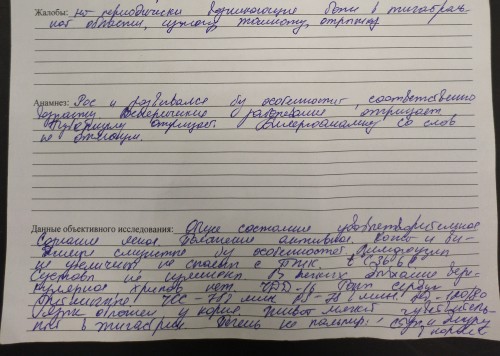 Жалобы: на периодически возникающие боли в эпигастраль-
ной области, изжогу, тошноту, отрыжку
Анамнез: Рос и развивался б/у особенностей, соответственно
возрасту. Венерические заболевания отрицает.
Туберкулез отрицает. Аллергоанамнез со слов
не отягощен.
Данные объективного исследования: Общее состояние удовлетворительное
Сознание ясное. Положение активное. Кожа и ви-
димые слизистые б/у особенностей. Лимфоузлы
не увеличены, не спаяны с ПЖК
Суставы не изменены. В легких дыхание вези-
кулярное хрипов нет. ЧДД-16 Тоны сердца
ритмичные. ЧСС-
Язык обложен у корня. Живот мягкий чувствитель-
ный в эпигастрии. Печень не пальпир.